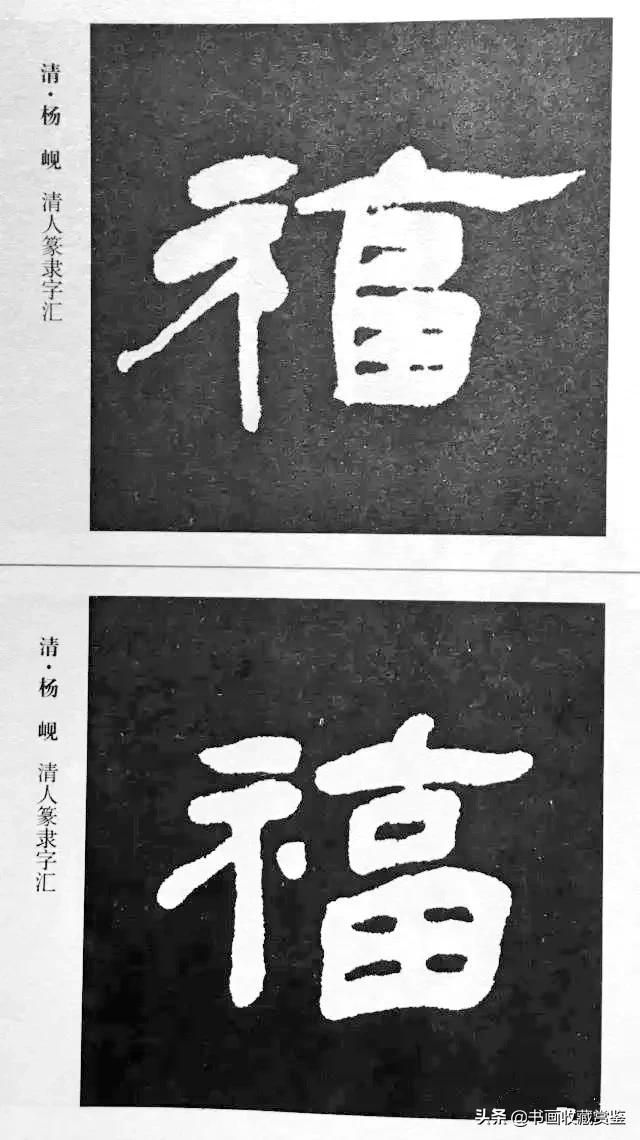 清·杨 岘 清人篆隶字汇
福
清·杨 岘 清人篆隶字汇
福
头条 @书画收藏赏鉴